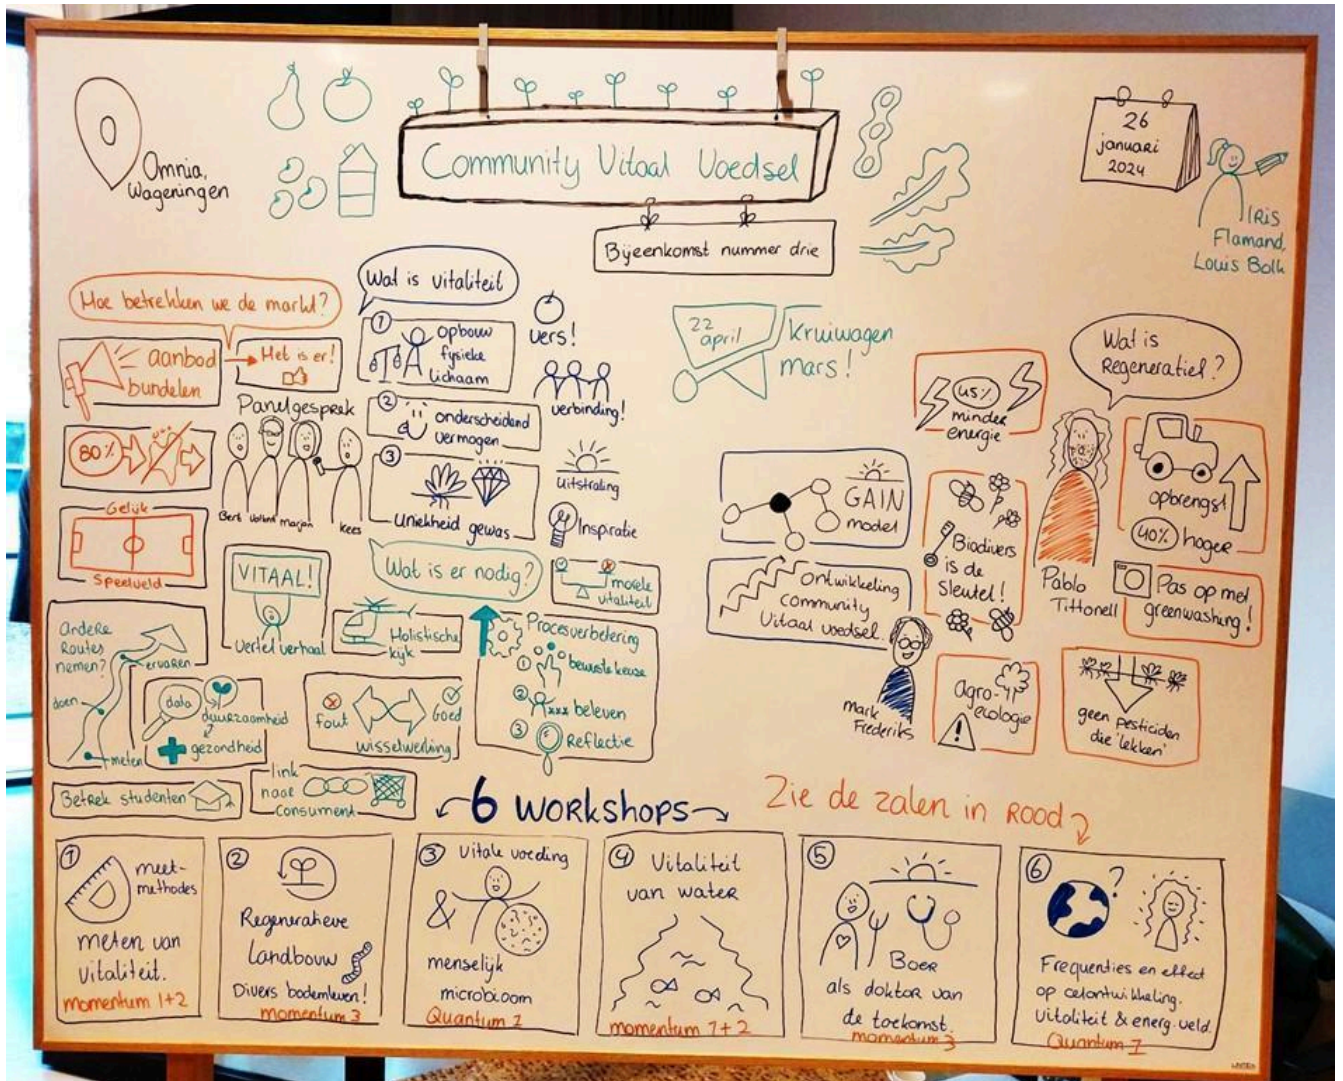 Omnia,
Wageningen
Community Vitaal Voedsel
Bijeenkomst nummer drie
26
januari
2024
IRis
Flamand,
Louis Bolk
Hoe betrekken we de markt?
aanbod
bundelen
Het is er!
80%
Gelijk
Speelveld
Panelgesprek
Bert
Marjon
Kees
Wat is vitaliteit
1
opbouw
fysieke
lichaam
2
onderscheidend
vermogen
3
Uniekheid gewas
vers!
verbinding!
Uitstraling
Inspiratie
VITAAL!
Vertel verhaal
Wat is er nodig?
morele
vitaliteit
Holistische
kijk
Procesverbetering
1 bewuste keuze
2 xxx beleven
3 Reflectie
andere
Routes
nemen?
ervaren
doen
meten
data
duurzaamheid
gezondheid
fout
Goed
wisselwerking
Betrek studenten
link
naar
consument
22
april
kruiwagen
mars!
GAIN
model
ontwikkeling
community
Vitaal voedsel.
Mark
Frederiks
Wat is
Regeneratief?
45%
minder
energie
Biodivers
is de
Sleutel!
Agro-
ecologie
Pablo
Tittonell
opbrengst
40% hoger
Pas op met
greenwashing!
geen pesticiden
die 'lekken'
6 WORKSHOPS
Zie de zalen in ROOD
1
meet-
methodes
meten van
vitaliteit.
momentum 1+2
2
Regeneratieve
Landbouw
Divers bodemleven!
momentum 3
3 Vitale voeding
&
menselijk
microbioom
Quantum 1
4 Vitaliteit
van water
momentum 1+2
5
Boer
als doktor van
de toekomst.
momentum 3
6
?
Frequenties en effect
op celontwikkeling.
vitaliteit & energ. veld.
Quantum 1